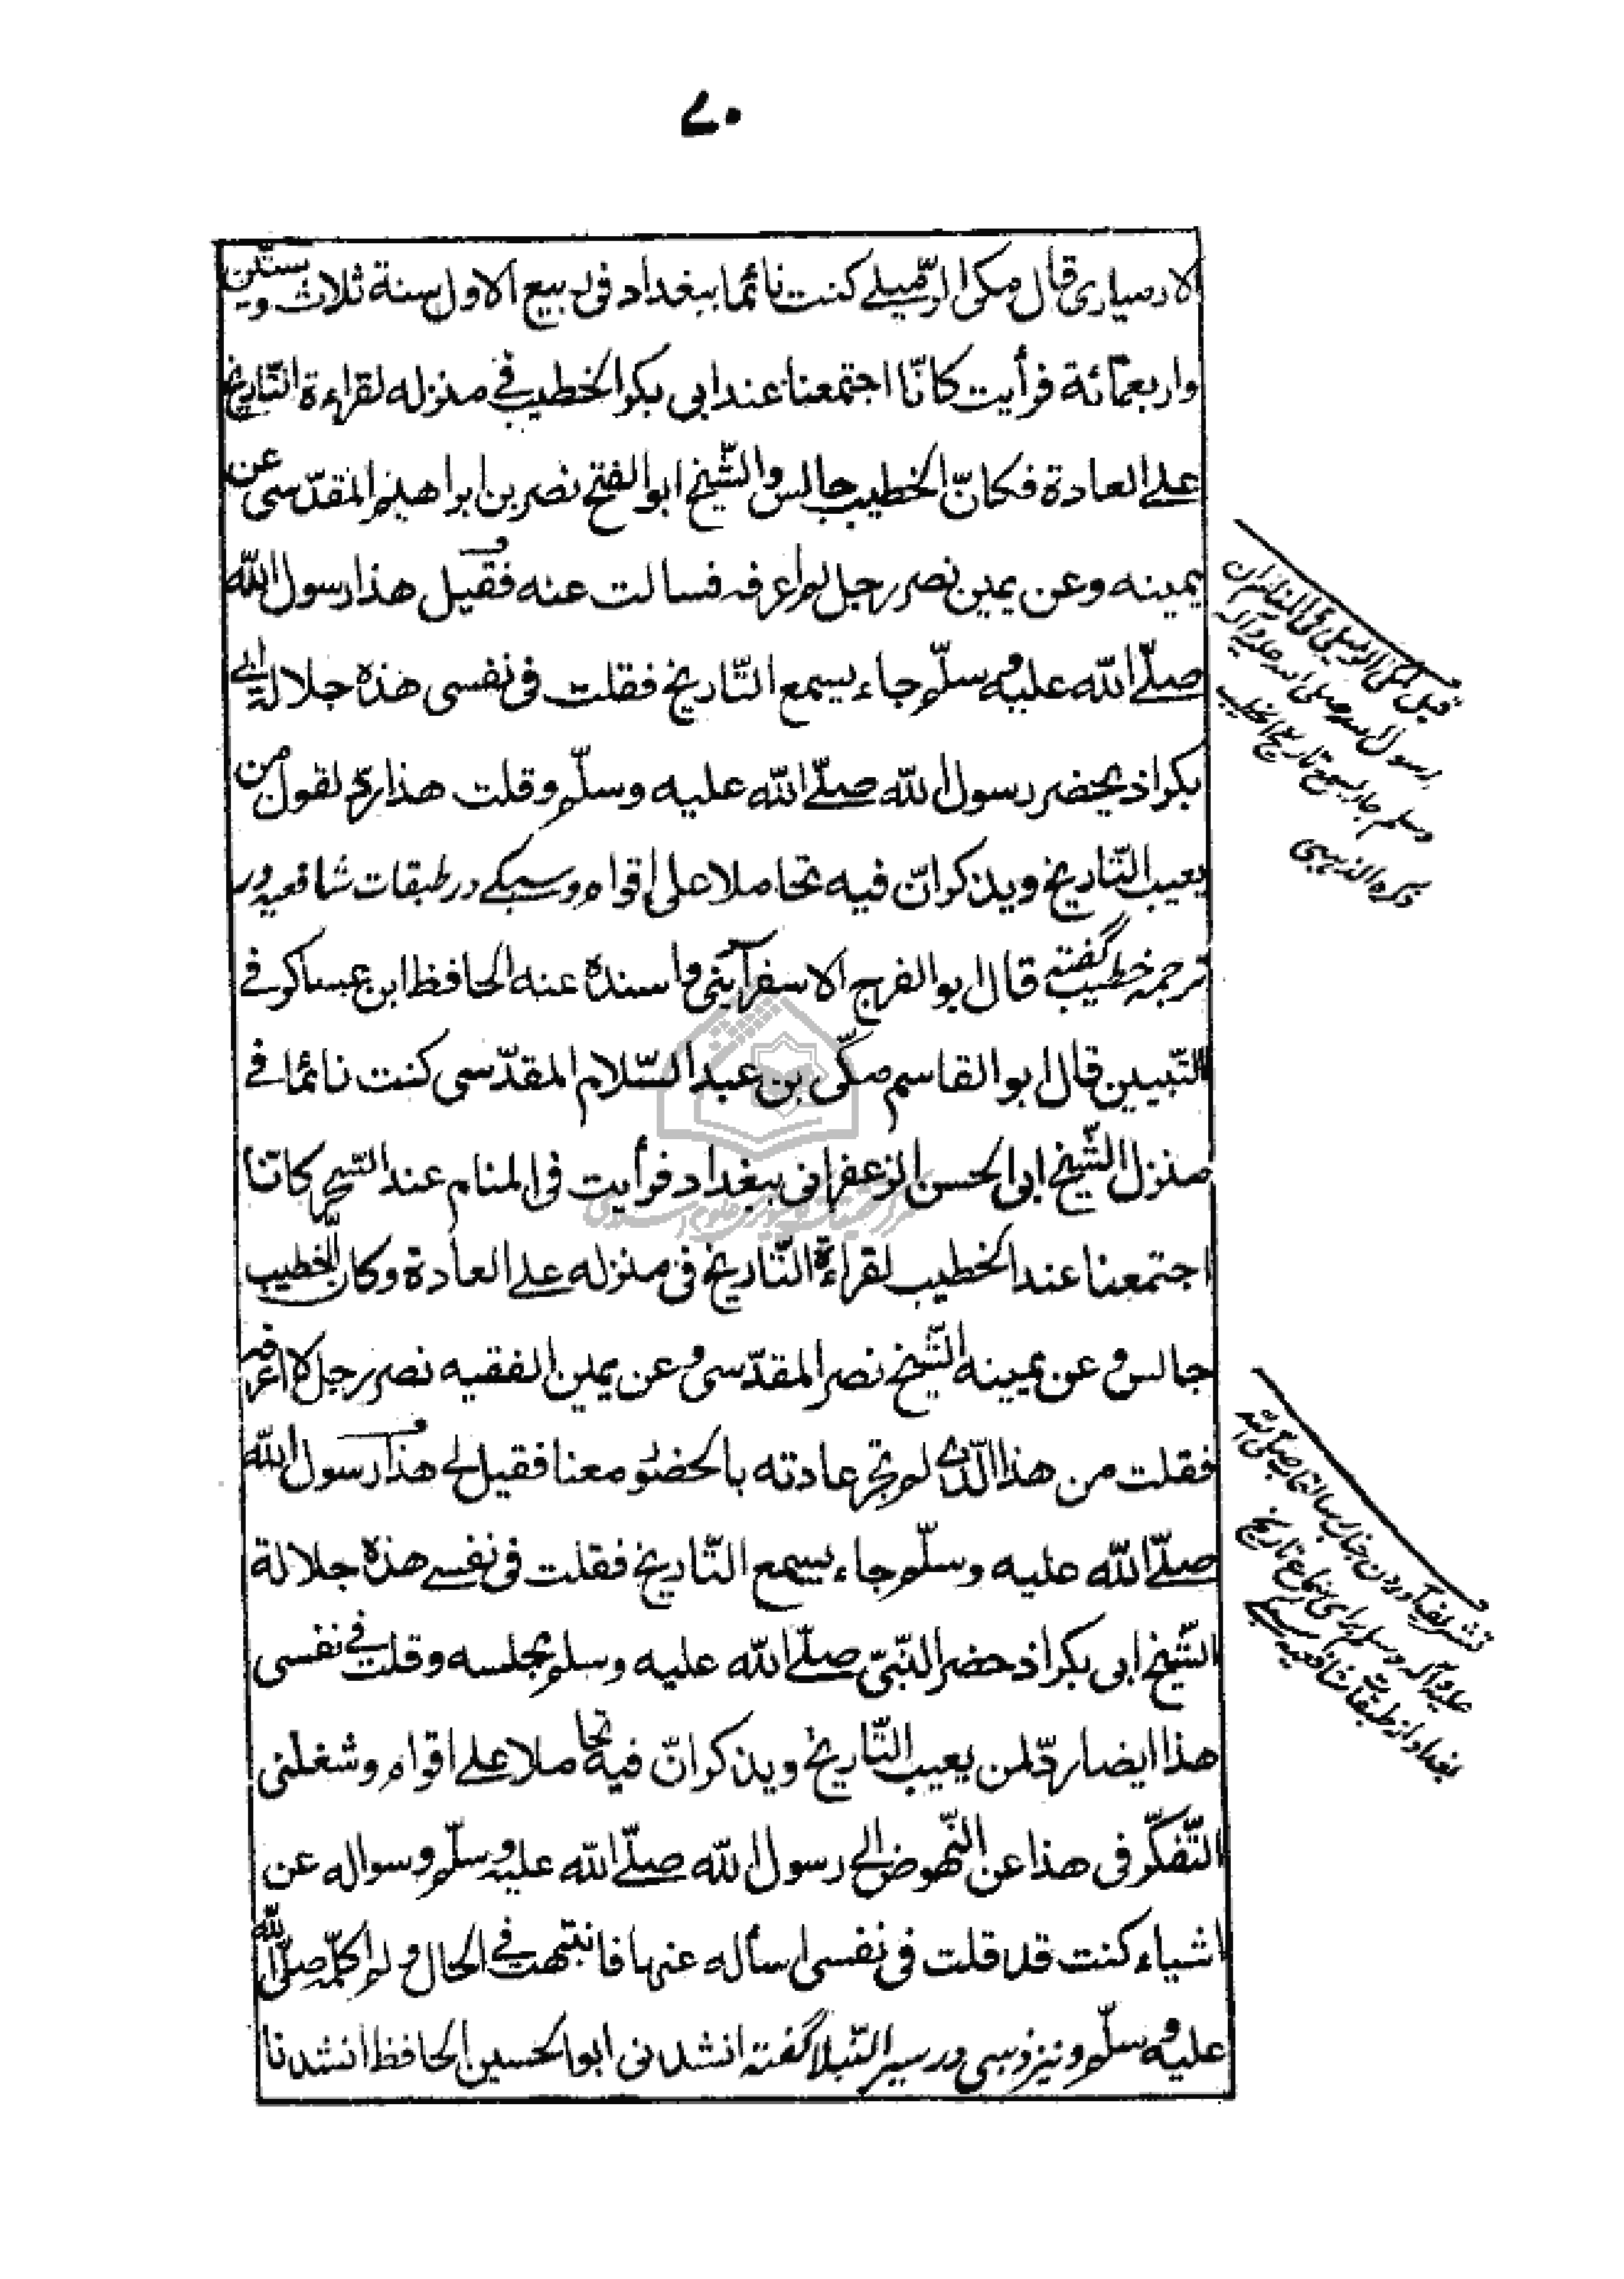 ۷۰
الارمياری قال مكی الرّميلے كنت نائما ببغداد فی ربيع الاول سنة ثلاث وستّين
واربعمّائة فرأيت كانّا اجتمعنا عند ابی بكر الخطيب فے منزله لقراءة التّاريخ
علے العادة فكانّ الخطيب جالس والشّيخ ابو الفتح نصر بن ابراهيم المقدّسی عن
يمينه وعن يمين نصر رجل لم اعرفه فسالت عنه فقيل هذا رسول اللّٰه
صلّے اللّٰه عليه وسلّم جاء يسمع التّاريخ فقلت فی نفسی هذه جلالة ابے
بكر اذ يحضر رسول اللّٰه صلّے اللّٰه عليه وسلّم وقلت هذا ردّ لقول من
يعيب التّاريخ ويذكر انّ فيه تحاملا علی اقوام وسبكے در طبقات شافعيه در
ترجمهٔ خطيب گفته قال ابو الفرج الاسفرآئينی واسنده عنه الحافظ ابن عساكر فے
التّبيين قال ابو القاسم مكّی بن عبد السّلام المقدّسی كنت نائما فے
منزل الشّيخ ابی الحسن الزعفرانی ببغداد فرأيت فی المنام عند السّحر كانّنا
اجتمعنا عند الخطيب لقراءة التّاريخ فی منزله علے العادة وكان الخطيب
جالس وعن يمينه الشّيخ نصر المقدّسی وعن يمين الفقيه نصر رجل لا اعرفه
فقلت من هذا الّذی لم تجر عادته بالحضو معنا فقيل لی هذا رسول اللّٰه
صلّے اللّٰه عليه وسلّم جاء يسمع التّاريخ فقلت فی نفسے هذه جلالة
الشّيخ ابی بكر اذ حضر النّبیّ صلّے اللّٰه عليه وسلم مجلسه وقلت فے نفسی
هذا ايضا ردّ لمن يعيب التّاريخ ويذكر انّ فيه تحاملا علے اقوام وشغلنی
التّفكّر فی هذا عن النّهوض الی رسول اللّٰه صلّے اللّٰه عليه وسلّم وسواله عن
اشياء كنت قد قلت فی نفسی اسأله عنها فانتبهت فے الحال ولم اكلّمه صلّی اللّٰه
عليه وسلّم ونيز ذهبی در سير النّبلا گفته انشدنی ابو الحسين الحافظ انشدنا
قيل لمكی الرميلی فی المنام ان
رسول الله صلی الله عليه وآله
وسلم جاء يسمع تاريخ الخطيب
ذكره الذهبی
تشريف آوردن جناب رسالتمآب صلی الله
عليه وآله وسلم برای سماع تاريخ
بغداد از طبقات شافعيه سبكے